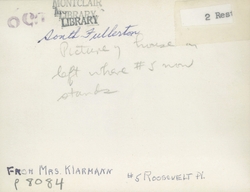 MONTCLAIR
LIBRARY
LIBRARY
2 Rest
South Fullerton
Picture of house on
left where #5 now
stands
FROM MRS. KLARMANN
P 8084
#5 ROOSEVELT Pl.